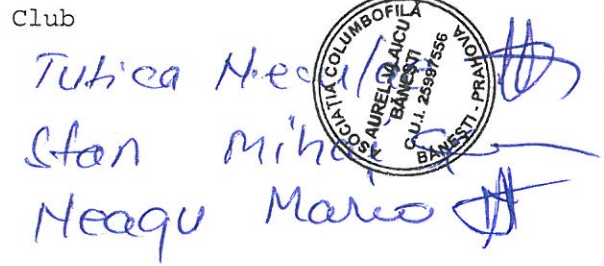 Club
Tutica Neculae
Stan Mihai
Neagu Mario
ASOCIAȚIA COLUMBOFILĂ
AUREL VLAICU
BĂNEȘTI
C.U.I. 25997556
BĂNEȘTI - PRAHOVA